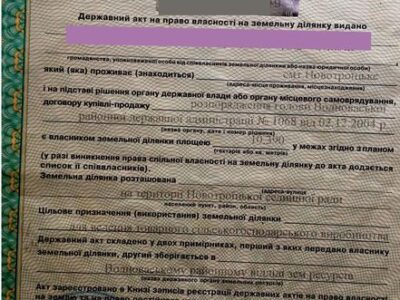 Державний акт на право власності на земельну ділянку видано
громадянина, уповноваженої особи від співвласників земельної ділянки або назва юридичної особи)
який (яка) проживає (знаходиться) смт Новотроїцьке
(адреса-місце проживання, місцезнаходження)
і на підставі рішення органу державної влади або органу місцевого самоврядування,
договору купівлі-продажу розпорядження голови Волноваської
районної державної адміністрації № 1068 від 02.12.2004 р
(назва органу, дата і номер рішення)
є власником земельної ділянки площею у межах згідно з планом
(гектарів або кв. метрів)
(у разі виникнення права спільної власності на земельну ділянку до акта додається
список її співвласників).
Земельна ділянка розташована
(адреса-вулиця
на території Новотроїцької селищної ради
населений пункт, район, область)
Цільове призначення (використання) земельної ділянки
для ведення товарного сільськогосподарського виробництва
Державний акт складено у двох примірниках, перший з яких передано власнику
земельної ділянки, другий зберігається в
Волноваському районному відділі зем ресурсів
(назва державного органу земельних ресурсів)
Акт зареєстровано в Книзі записів реєстрації державних актів на право власності
на землю та на право постійного